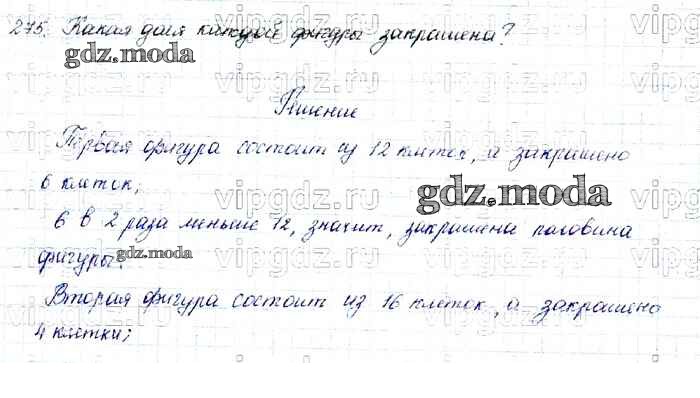 275. Какая доля каждой фигуры закрашена?
gdz.moda
Решение
Первая фигура состоит из 12 клеток, а закрашено
6 клеток;
gdz.moda
6 в 2 раза меньше 12, значит, закрашена половина
фигуры.
gdz.moda
Вторая фигура состоит из 16 клеток, а закрашено
4 клетки;
vipgdz.ru